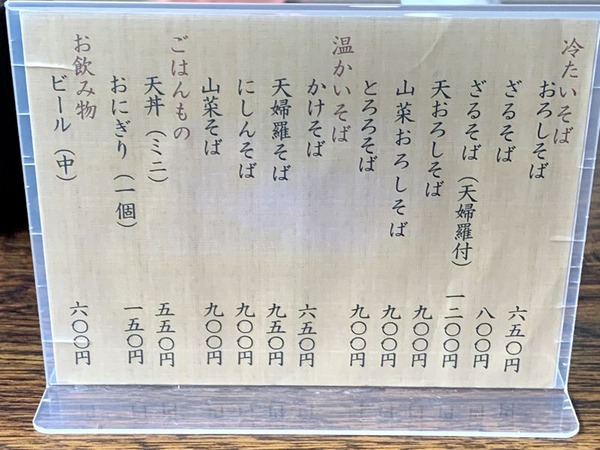 冷たいそば
おろしそば 六五〇円
ざるそば 八〇〇円
ざるそば（天婦羅付） 一二〇〇円
天おろしそば 九〇〇円
山菜おろしそば 九〇〇円
とろろそば 九〇〇円
温かいそば
かけそば 六五〇円
天婦羅そば 九五〇円
にしんそば 九〇〇円
山菜そば 九〇〇円
ごはんもの
天丼（ミニ） 五五〇円
おにぎり（一個） 一五〇円
お飲み物
ビール（中） 六〇〇円